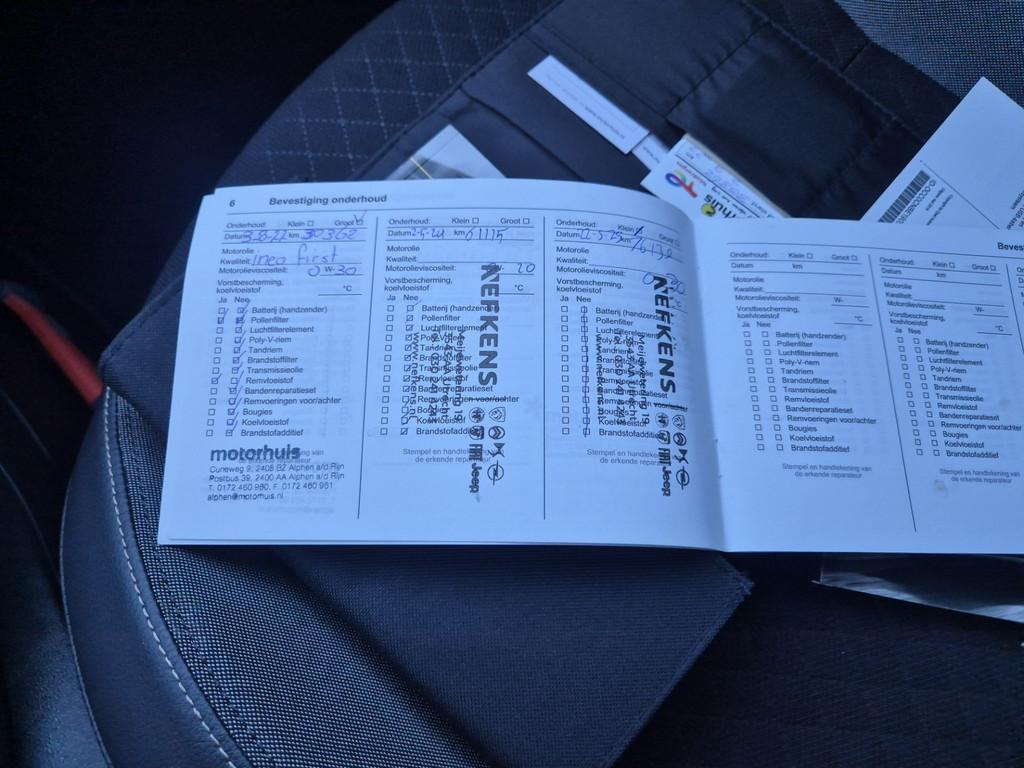 6 Bevestiging onderhoud
Onderhoud: Klein Groot
Datum km
Motorolie
Kwaliteit: ineo first
Motorolieviscositeit: 0 W- 30
Vorstbescherming,
koelvloeistof °C
Ja Nee
Batterij (handzender)
Pollenfilter
Luchtfilterelement
Poly-V-riem
Tandriem
Brandstoffilter
Transmissieolie
Remvloeistof
Bandenreparatieset
Remvoeringen voor/achter
Bougies
Koelvloeistof
Brandstofadditief
motorhuis
Curieweg 9, 2408 BZ Alphen a/d Rijn
Postbus 39, 2400 AA Alphen a/d Rijn
T. 0172 460 960, F. 0172 460 961
alphen@motorhuis.nl
Onderhoud: Klein Groot
Datum 2-5-24 km 61115
Motorolie
Kwaliteit:
Motorolieviscositeit: W- 20
Vorstbescherming,
koelvloeistof °C
Ja Nee
Batterij (handzender)
Pollenfilter
Luchtfilterelement
Poly-V-riem
Tandriem
Remvloeistof
Bandenreparatieset
Remvoeringen voor/achter
Bougies
Koelvloeistof
Brandstofadditief
Stempel en
de erkende reparateur
NEFKENS
Meijewetering 19
www.nefkens.nl
Jeep
Onderhoud: Klein Groot
Datum 12-5-25 km
Motorolie
Kwaliteit:
Motorolieviscositeit:
Vorstbescherming,
koelvloeistof °C
Ja Nee
Batterij (handzender)
Pollenfilter
Luchtfilterelement
Poly-V-riem
Tandriem
Brandstoffilter
Transmissieolie
Remvloeistof
Bandenreparatieset
Remvoeringen voor/achter
Bougies
Koelvloeistof
Brandstofadditief
Stempel en
de erkende reparateur
NEFKENS
Meijewetering 19
www.nefkens.nl
Jeep
Onderhoud: Klein Groot
Datum km
Motorolie
Kwaliteit:
Motorolieviscositeit: W-
Vorstbescherming,
koelvloeistof °C
Ja Nee
Batterij (handzender)
Pollenfilter
Luchtfilterelement
Poly-V-riem
Tandriem
Brandstoffilter
Transmissieolie
Remvloeistof
Bandenreparatieset
Remvoeringen voor/achter
Bougies
Koelvloeistof
Brandstofadditief
Stempel en handtekening van
de erkende reparateur
Beves
Onderhoud: Klein Groot
Datum km
Motorolie
Kwaliteit:
Motorolieviscositeit: W-
Vorstbescherming,
koelvloeistof °C
Ja Nee
Batterij (handzender)
Pollenfilter
Luchtfilterelement
Poly-V-riem
Tandriem
Brandstoffilter
Transmissieolie
Remvloeistof
Bandenreparatieset
Remvoeringen voor/achter
Bougies
Koelvloeistof
Brandstofadditief
Stempel en handtekening van
de erkende reparateur